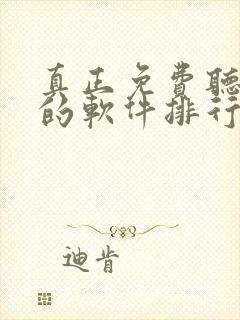 真正免費聽
的軟件排行
迪肯